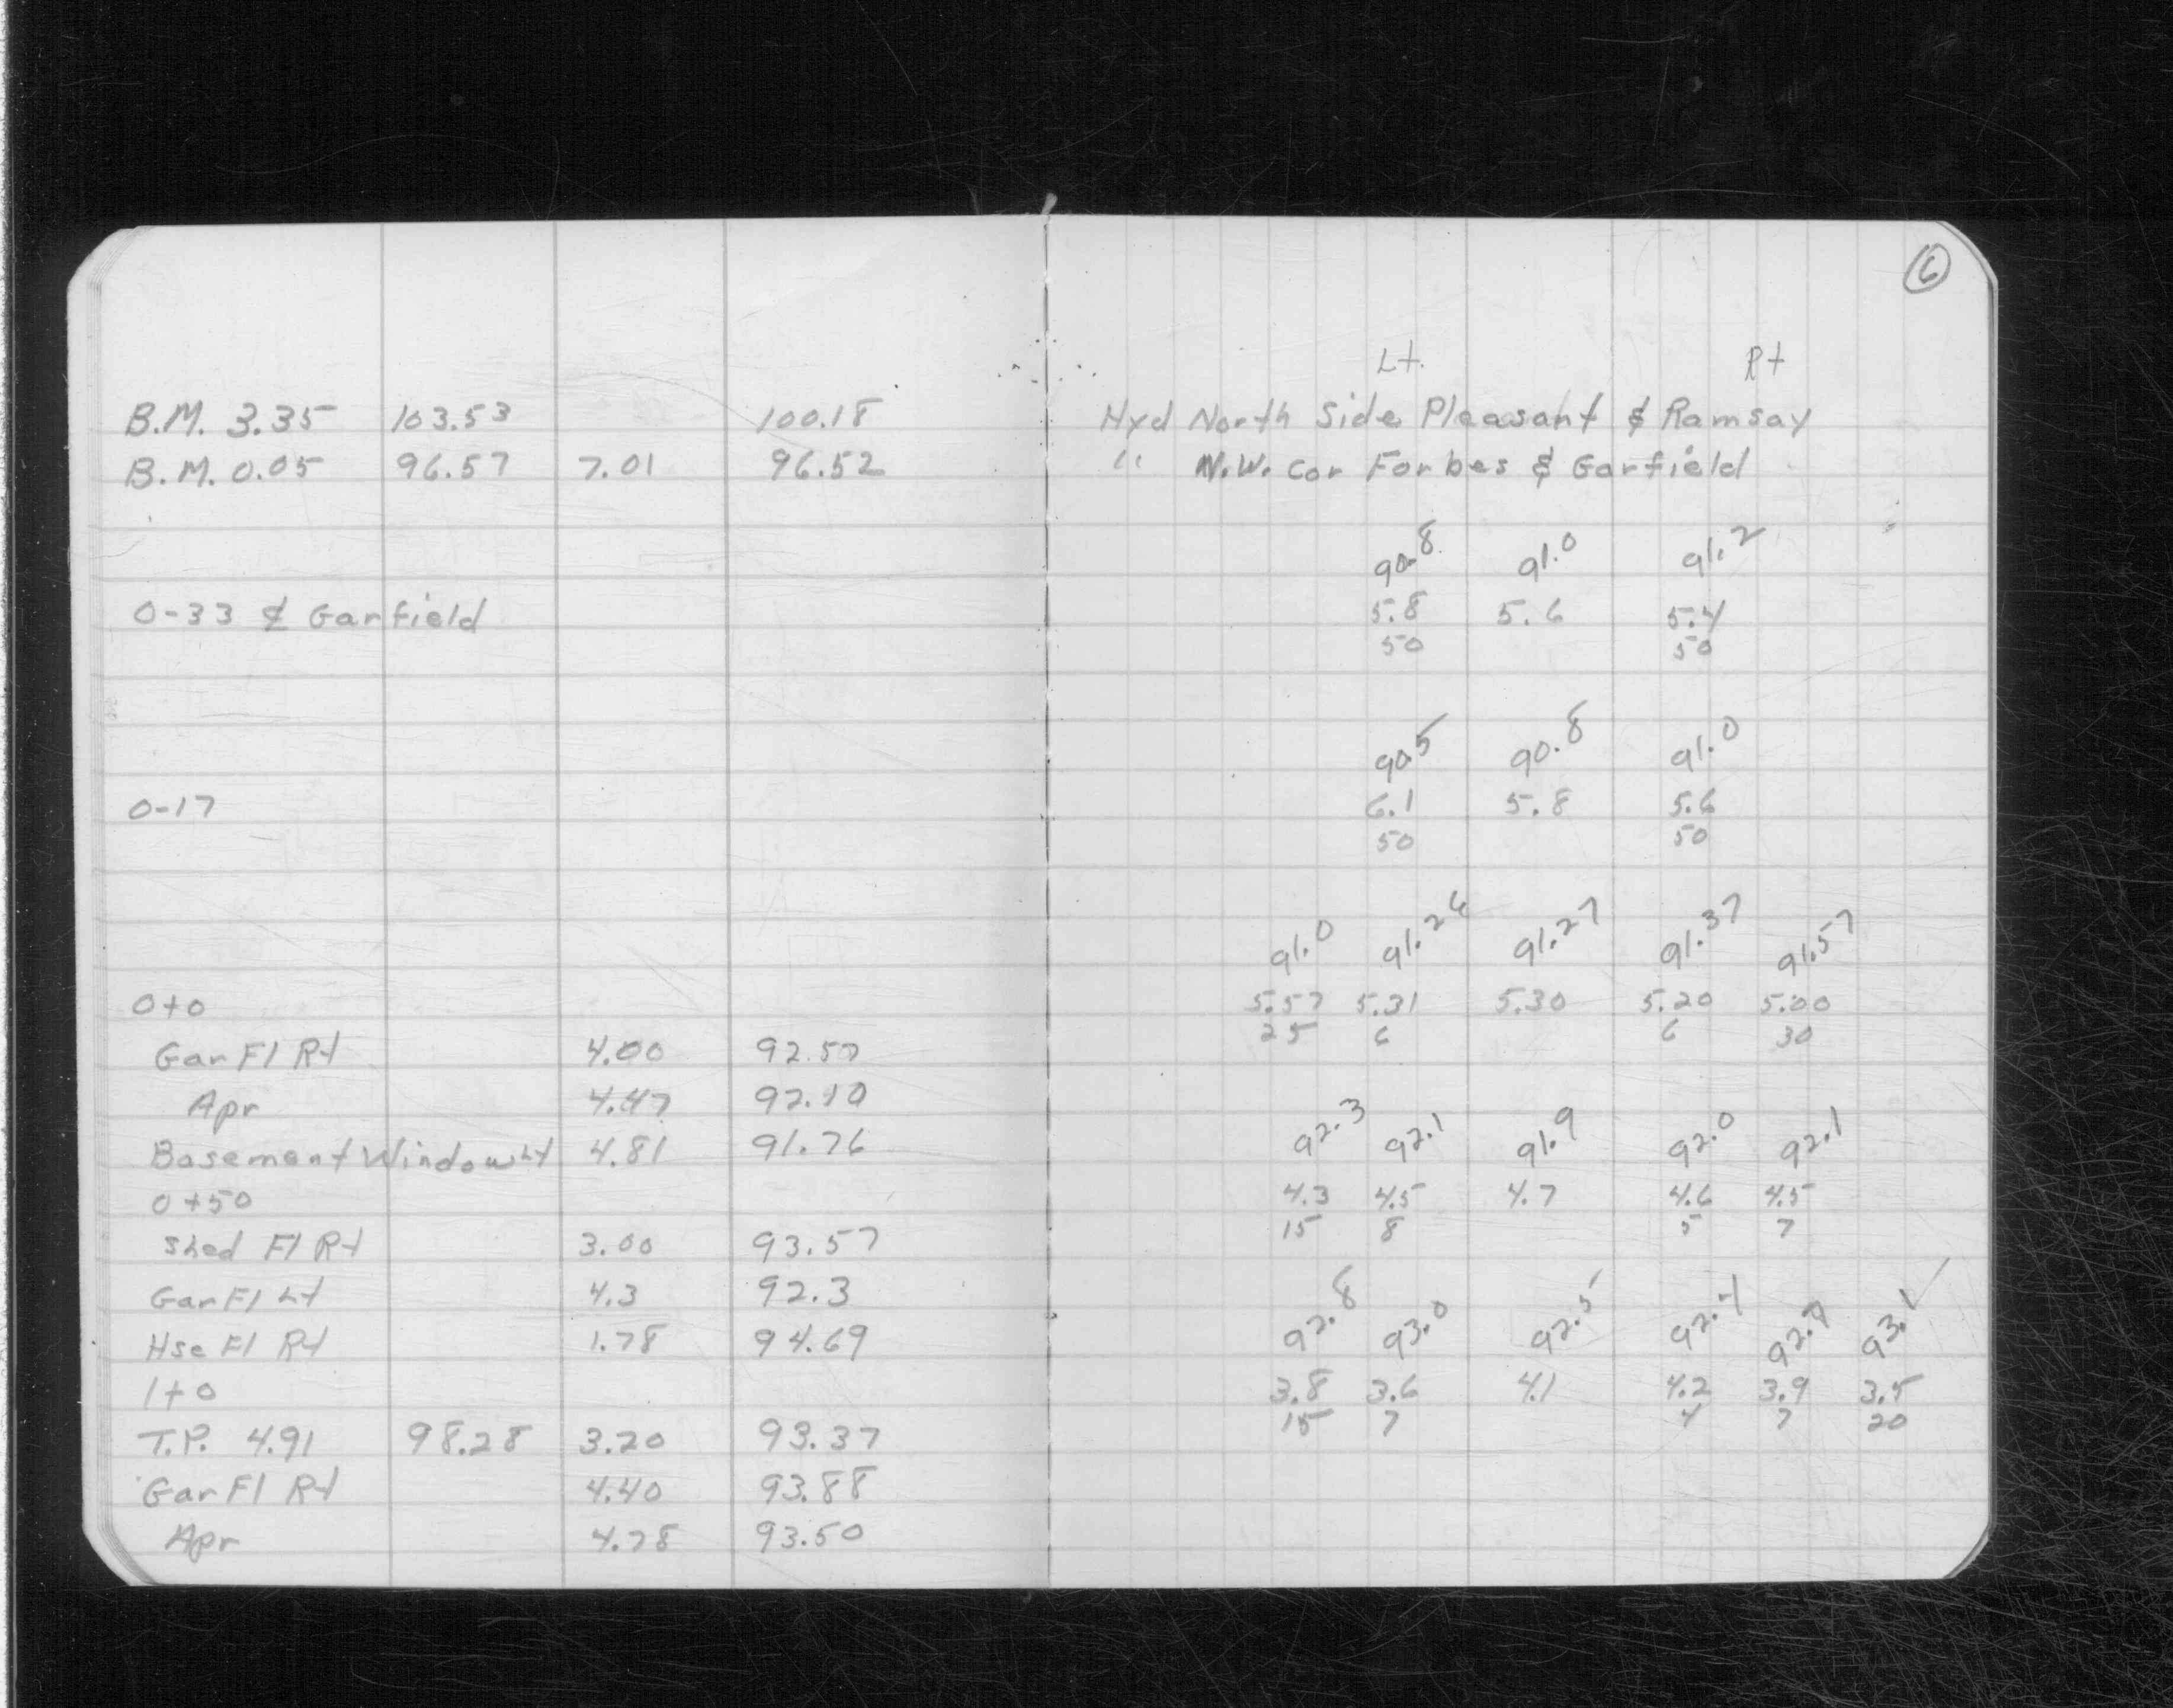 6
Lt. Rt
B.M. 3.35 103.53 100.18 Hyd North Side Pleasant & Ramsay
B.M. 0.05 96.57 7.01 96.52 " N.W. Cor Forbes & Garfield
90.8 91.0 91.2
0-33 ℄ Garfield 5.8 5.6 5.4
50 50
90.5 90.8 91.0
0-17 6.1 5.8 5.6
50 50
91.0 91.26 91.27 91.37 91.57
0+0 5.57 5.31 5.30 5.20 5.00
25 6 6 30
Gar Fl Rt 4.00 92.57
Apr 4.47 92.10
92.3 92.1 91.9 92.0 92.1
Basement Window Lt 4.81 91.76
0+50 4.3 4.5 4.7 4.6 4.5
15 8 5 7
Shed Fl Rt 3.00 93.57
Gar Fl Lt 4.3 92.3
92.8 93.0 92.5 92.4 92.7 93.1
Hse Fl Rt 1.78 94.69
1+0 3.8 3.6 4.1 4.2 3.9 3.5
15 7 4 7 20
T.P. 4.91 98.28 3.20 93.37
Gar Fl Rt 4.40 93.88
Apr 4.78 93.50